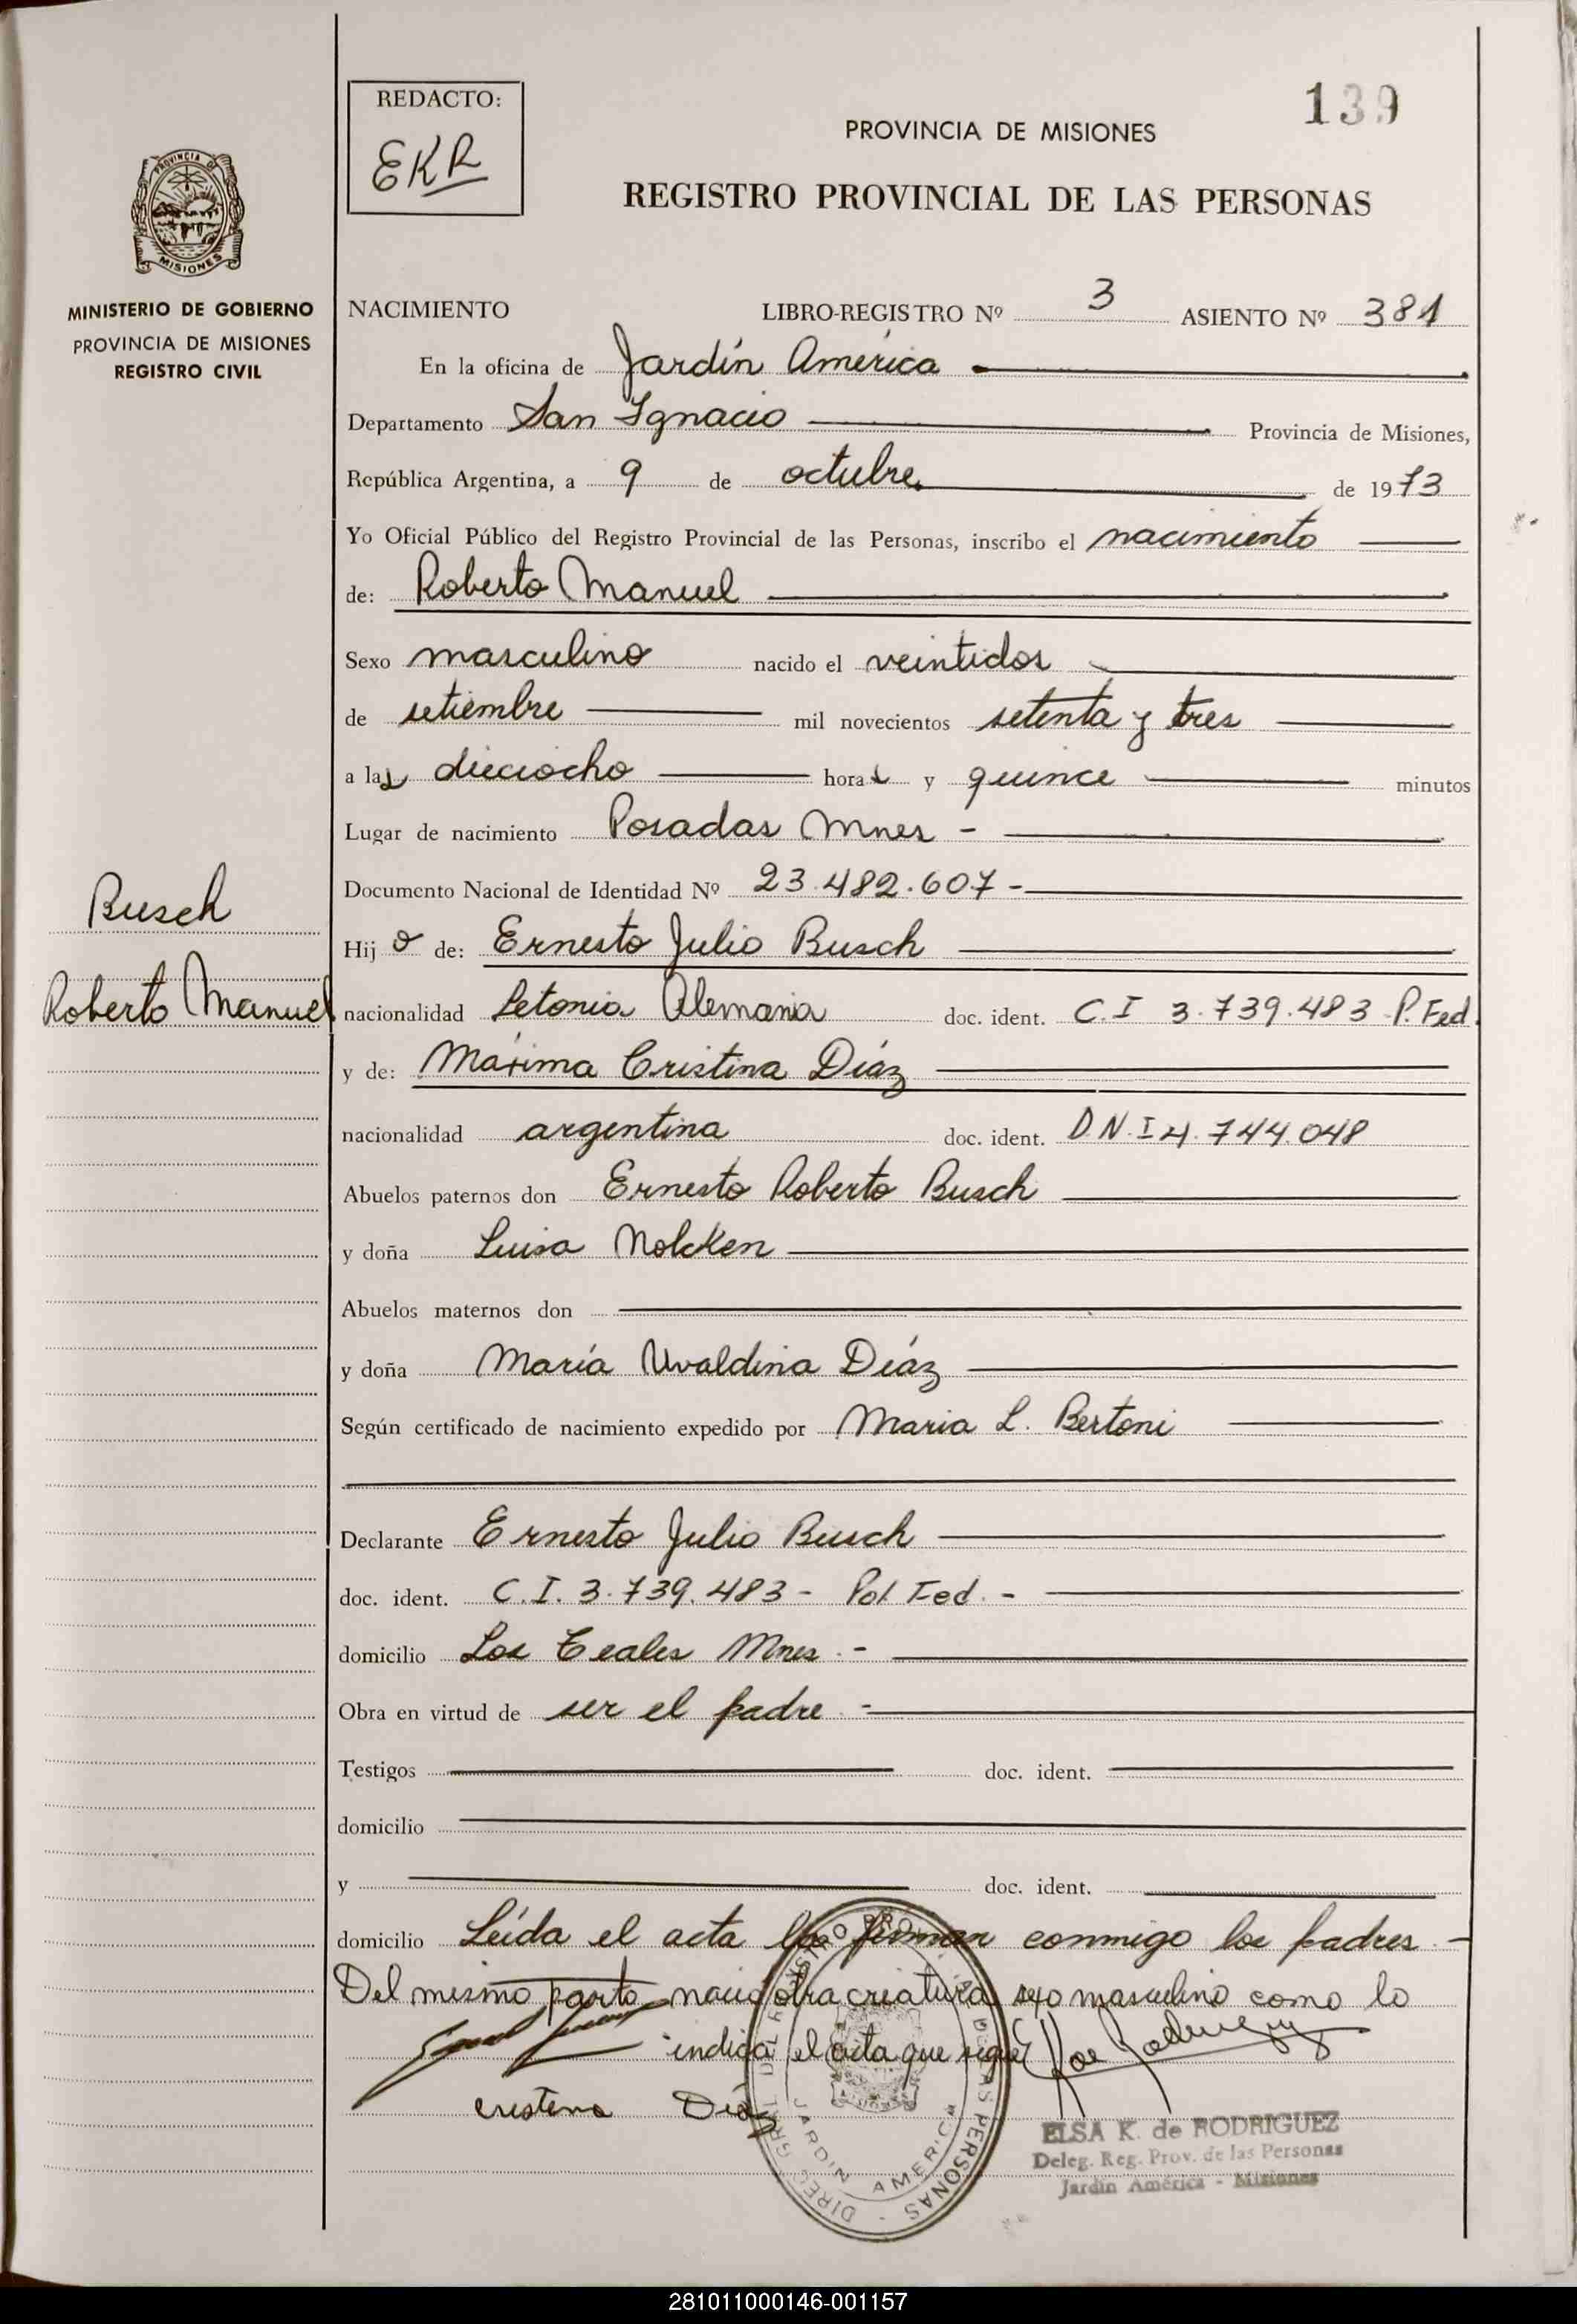 139
REDACTO:
EKR
PROVINCIA DE MISIONES
REGISTRO PROVINCIAL DE LAS PERSONAS
PROVINCIA DE
MISIONES
MINISTERIO DE GOBIERNO
PROVINCIA DE MISIONES
REGISTRO CIVIL
NACIMIENTO LIBRO-REGISTRO Nº 3 ASIENTO Nº 381
En la oficina de Jardín América
Departamento San Ignacio Provincia de Misiones,
República Argentina, a 9 de octubre de 1973
Yo Oficial Público del Registro Provincial de las Personas, inscribo el nacimiento
de: Roberto Manuel
Sexo masculino nacido el veintidos
de setiembre mil novecientos setenta y tres
a las dieciocho horas y quince minutos
Lugar de nacimiento Posadas Mnes -
Documento Nacional de Identidad Nº 23.482.607 -
Busch
Roberto Manuel
Hijo de: Ernesto Julio Busch
nacionalidad Letonia Alemania doc. ident. C.I 3.739.483 P.Fed.
y de: Máxima Cristina Díaz
nacionalidad argentina doc. ident. D.N.I 4.744.048
Abuelos paternos don Ernesto Roberto Busch
y doña Luisa Nolcken
Abuelos maternos don
y doña María Uvaldina Díaz
Según certificado de nacimiento expedido por Maria L. Bertoni
Declarante Ernesto Julio Busch
doc. ident. C.I. 3.739.483 - Pol Fed. -
domicilio Los Teales Mnes. -
Obra en virtud de ser el padre -
Testigos doc. ident.
domicilio
y doc. ident.
domicilio Leída el acta la firman conmigo los padres. -
Del mismo parto nació otra criatura sexo masculino como lo
indica el acta que sigue
cristina Díaz
JARDIN AMERICA
ELSA K. de RODRIGUEZ
Deleg. Reg. Prov. de las Personas
Jardín América - Misiones
281011000146-001157